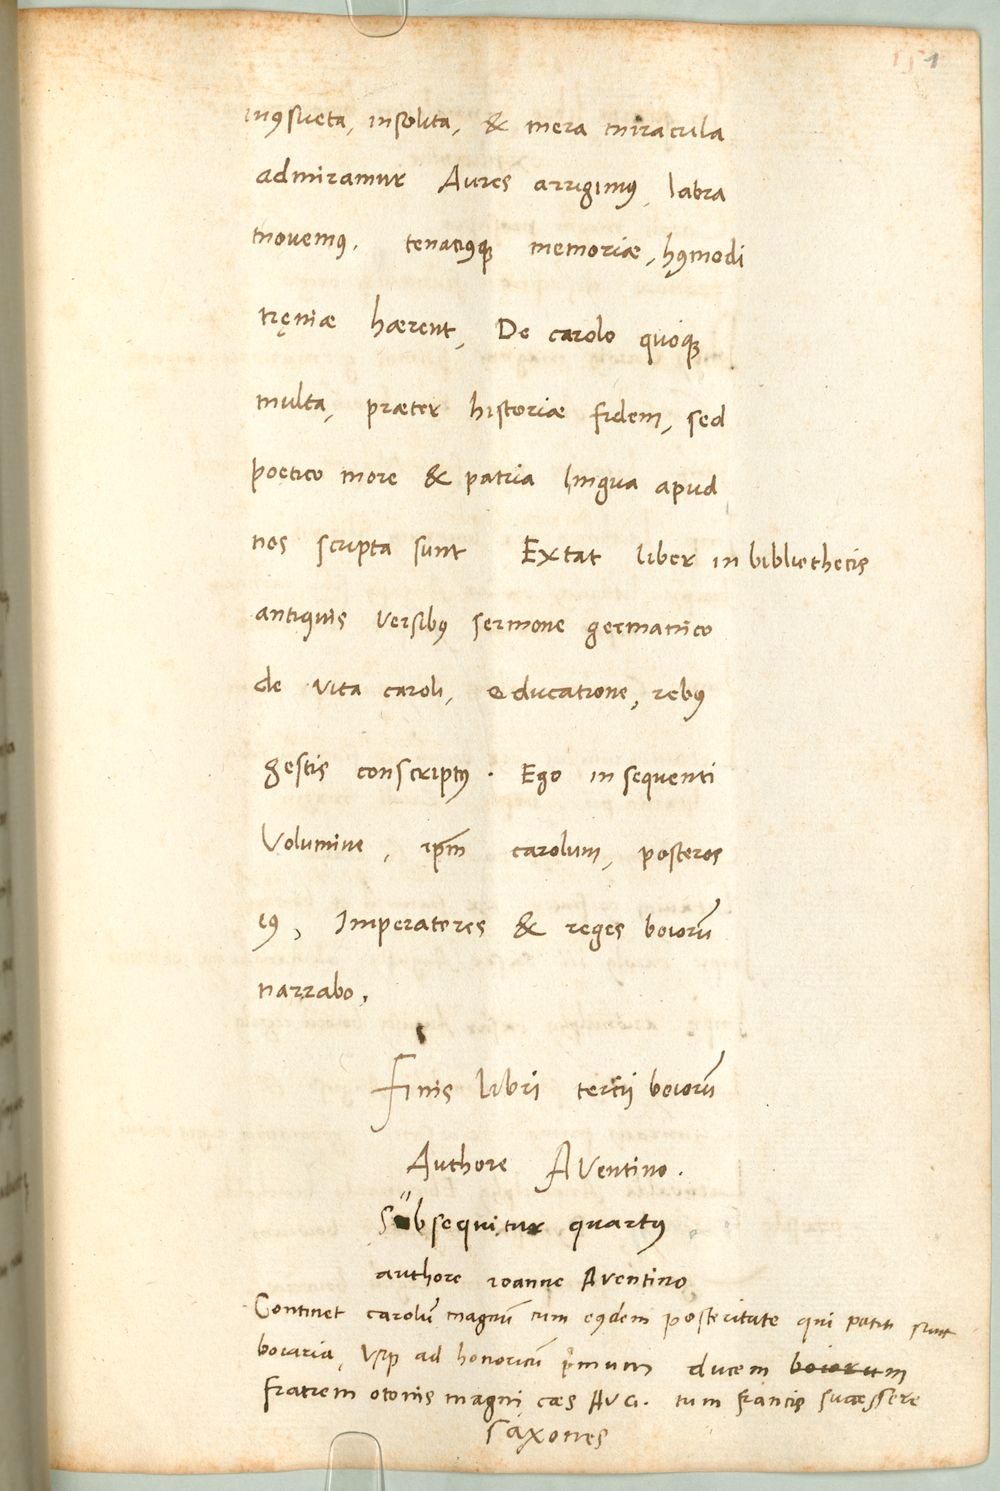 151
inꝯsueta, insolita, & mera miracula
admiramur Aures arrigimꝯ, labra
mouemꝯ. tenaciꝯqꝫ memoriæ, hꝯmodi
nęniæ hærent, De carolo quoqꝫ
multa, præter historiæ fidem, sed
poetico more & patria lingua apud
nos scripta sunt Extat liber in bibliothecis
antiquis versibꝯ sermone germanico
de vita caroli, educatione, rebꝯ
gestis conscriptꝯ. Ego in sequenti
Volumine, ipm̄ carolum, posteros
eiꝯ, Imperatores & reges boiorū
narrabo,
Finis libri tertij boiorū
Authore Aventino.
Subsequitur quartꝯ
authore ioanne Aventino
Continet carolū magnū cum eꝯdem posteritate qui potiti sunt
boiaria, Vsqꝫ ad honoricū pͥmum ducem boiorum
fratrem otonis magni cæs AVG. tum francis successere
saxones